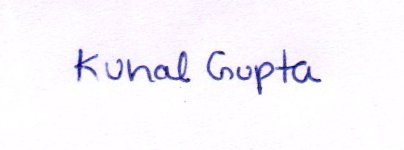 Kunal Gupta